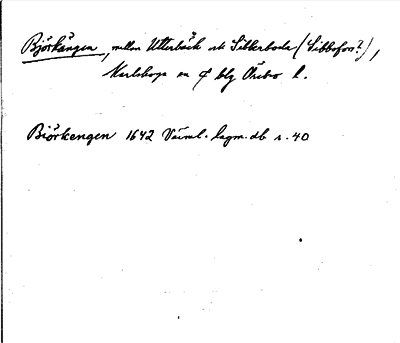 Björkängen, mellan Utterbäck och Sibberboda (Sibbofors?),
Karlskoga sn o blg Örebro l.
Biörkengen 1642 Värml. lagm.db s. 40